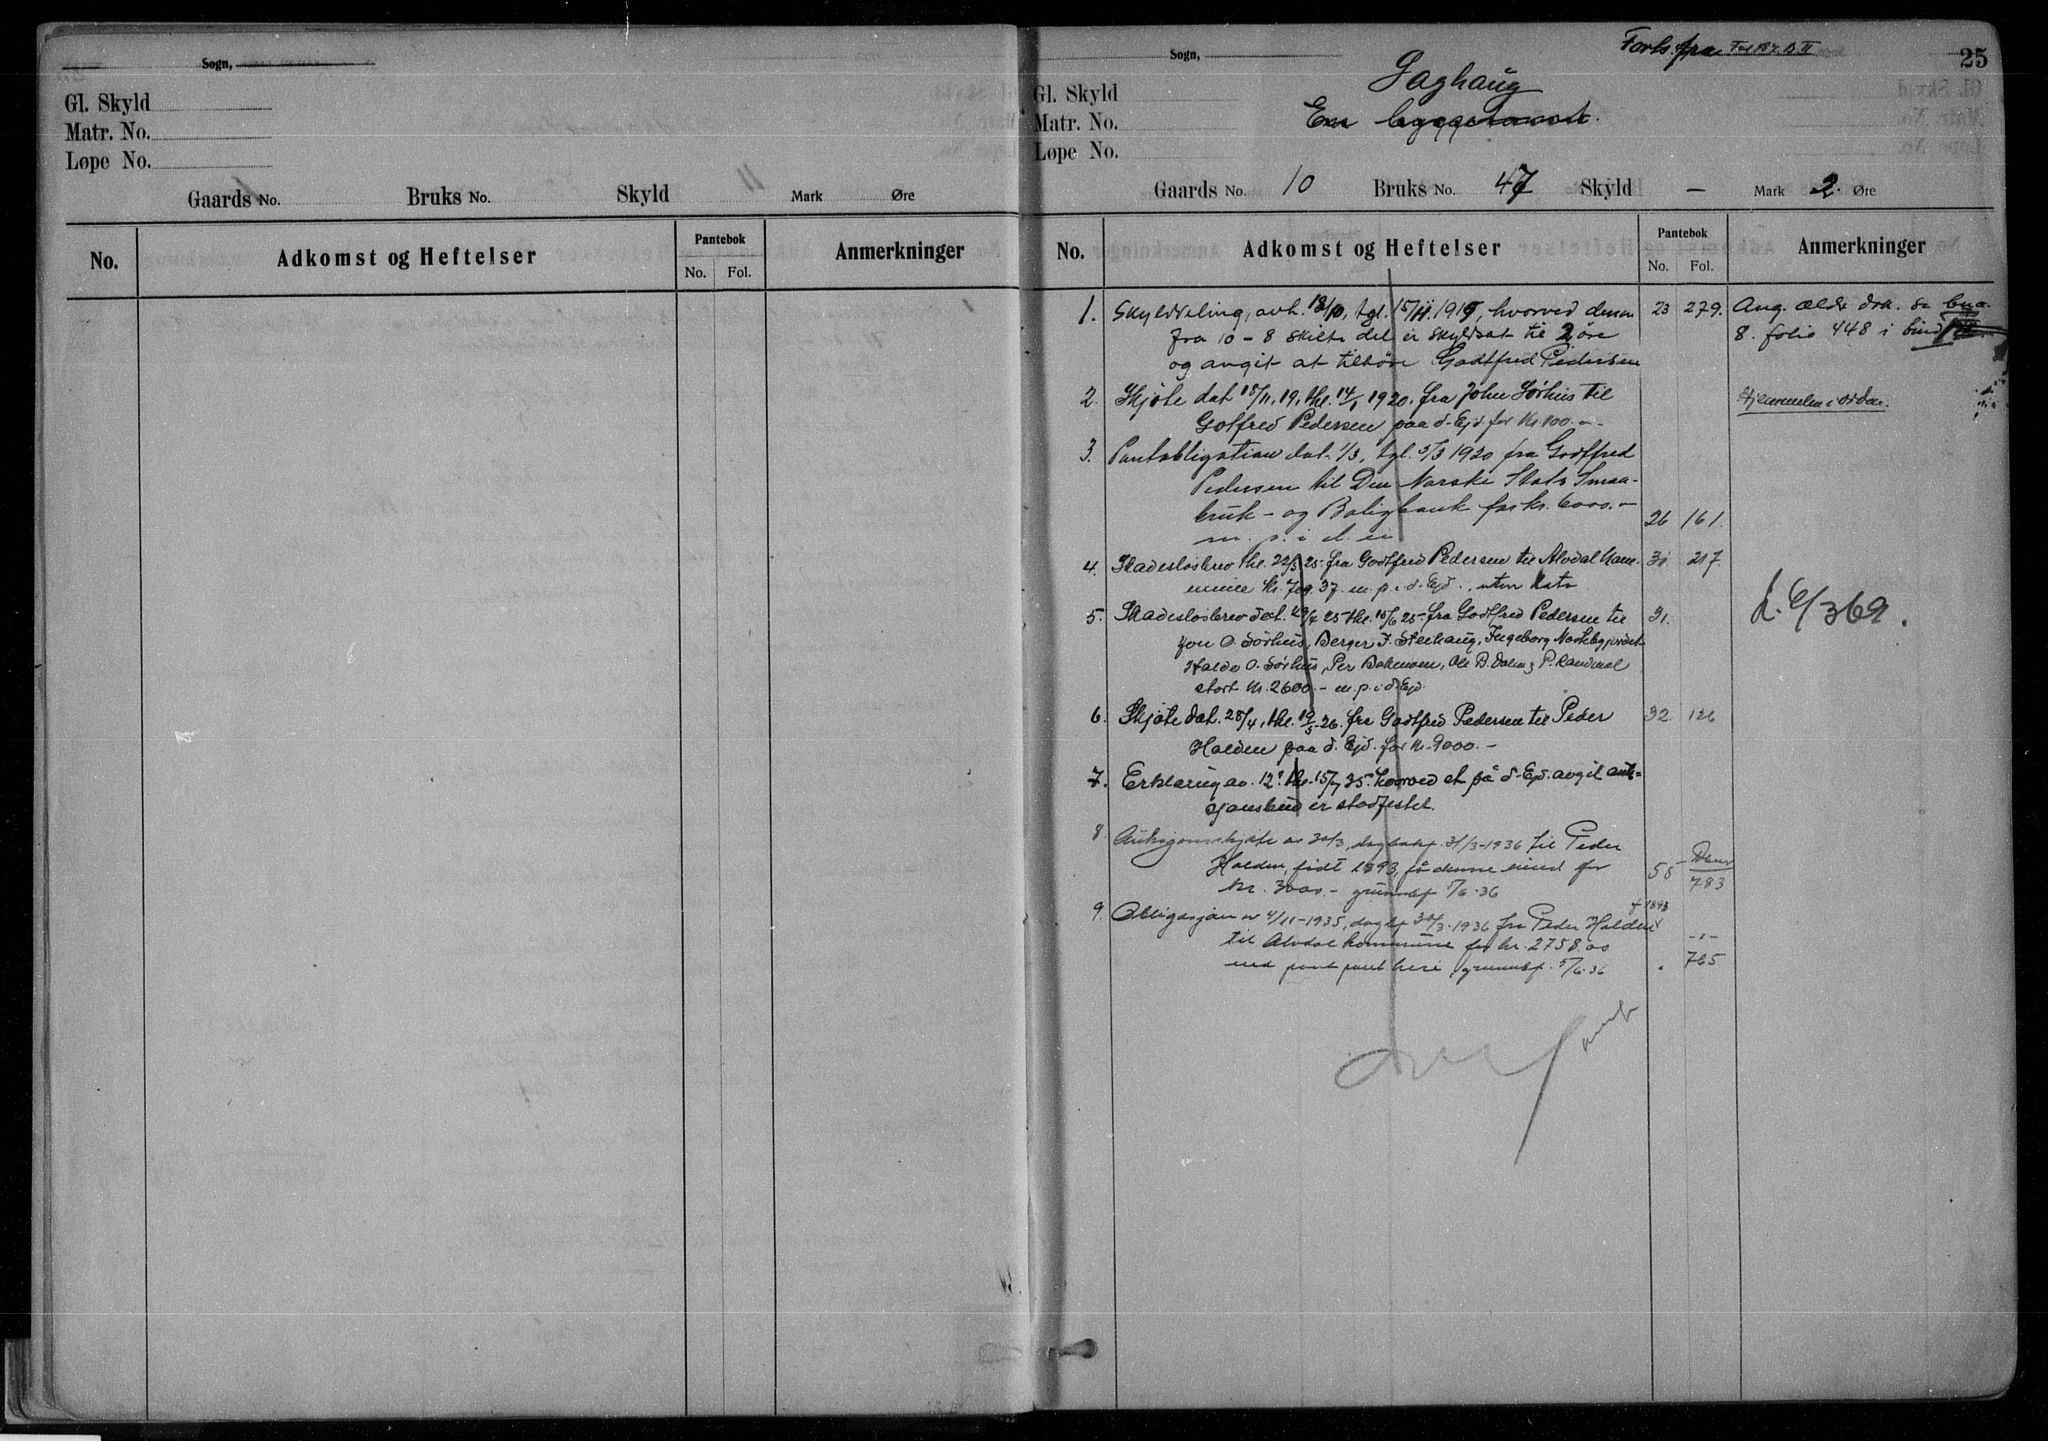 Sogn,
Gl. Skyld
Matr. No.
Løpe No.
Gaards No. Bruks No. Skyld Mark Øre
No. Adkomst og Heftelser Pantebok Anmerkninger
No. Fol.
Forts. fra Fol 187 B II
25
Sogn,
Saghaug
Gl. Skyld
En byggetomt.
Matr. No.
Løpe No.
Gaards No. 10 Bruks No. 47 Skyld - Mark 2. Øre
No. Adkomst og Heftelser Pantebok Anmerkninger
No. Fol.
1. Skylddeling, avh. 18/10, tgl. 15/11. 1919, hvorved denne 23 279. Ang. ældre dok. se bno.
fra 10 - 8 skilte del er skyldsat til 2 øre 8. folio 448 i bind
og avgit at tilhøre Godtfred Pedersen
2. Skjøte dat 18/11. 19, thl. 14/1 1920. fra John Sørhus til Hjemmelen i orden.
Gotfred Pedersen paa d. Ejd. for Kr 100.-
3. Pantobligation dat. 1/3, tgl. 5/3 1920 fra Godtfred
Pedersen til Den Norske Stats Smaa-
bruk- og Boligbank for kr. 6000.- 26 161.
m. p. i d. ei
4. Skadesløsbrev thl. 22/5 25 fra Godtfred Pedersen til Alvdal kom- 31 217.
mune Kr. 709.37. m. p. i d. Ejd., uten dato
5. Skadesløsbrev dat. 29/4 25 thl. 15/6 25 fra Godtfred Pedersen til 31. L. 6/369.
Jon O. Sørhus, Berger J. Steihaug, Ingeborg
Haldo O. Sørhus, Per Bakmoen, Ole B. Dalen & P. Randmæl
stort Kr. 2600.- m. p. i d. Ejd.
6. Skjøte dat. 28/4, thl. 19/5-26. fra Godtfred Pedersen til Peder 32. 126
Holden paa d. Ejd. for Kr. 9000.-
7. Erklæring av. 12. thl. 15/7 35. hvorved et på d. Ejd. avgit auk-
sjonsbud er stadfestet.
8. Auksjonsskjøte av 30/3, dagbokf. 31/3-1936 til Peder
Holden, født 1893, på denne eiend for 55 783
kr. 3000.- grunnbf 5/6-36
9. Obligasjon av 4/11-1935, dagbf 30/3-1936 fra Peder Holden f 1893
til Alvdal kommune for kr. 2758.00 -"-
med pant heri, grunnbf. 5/6-36 765